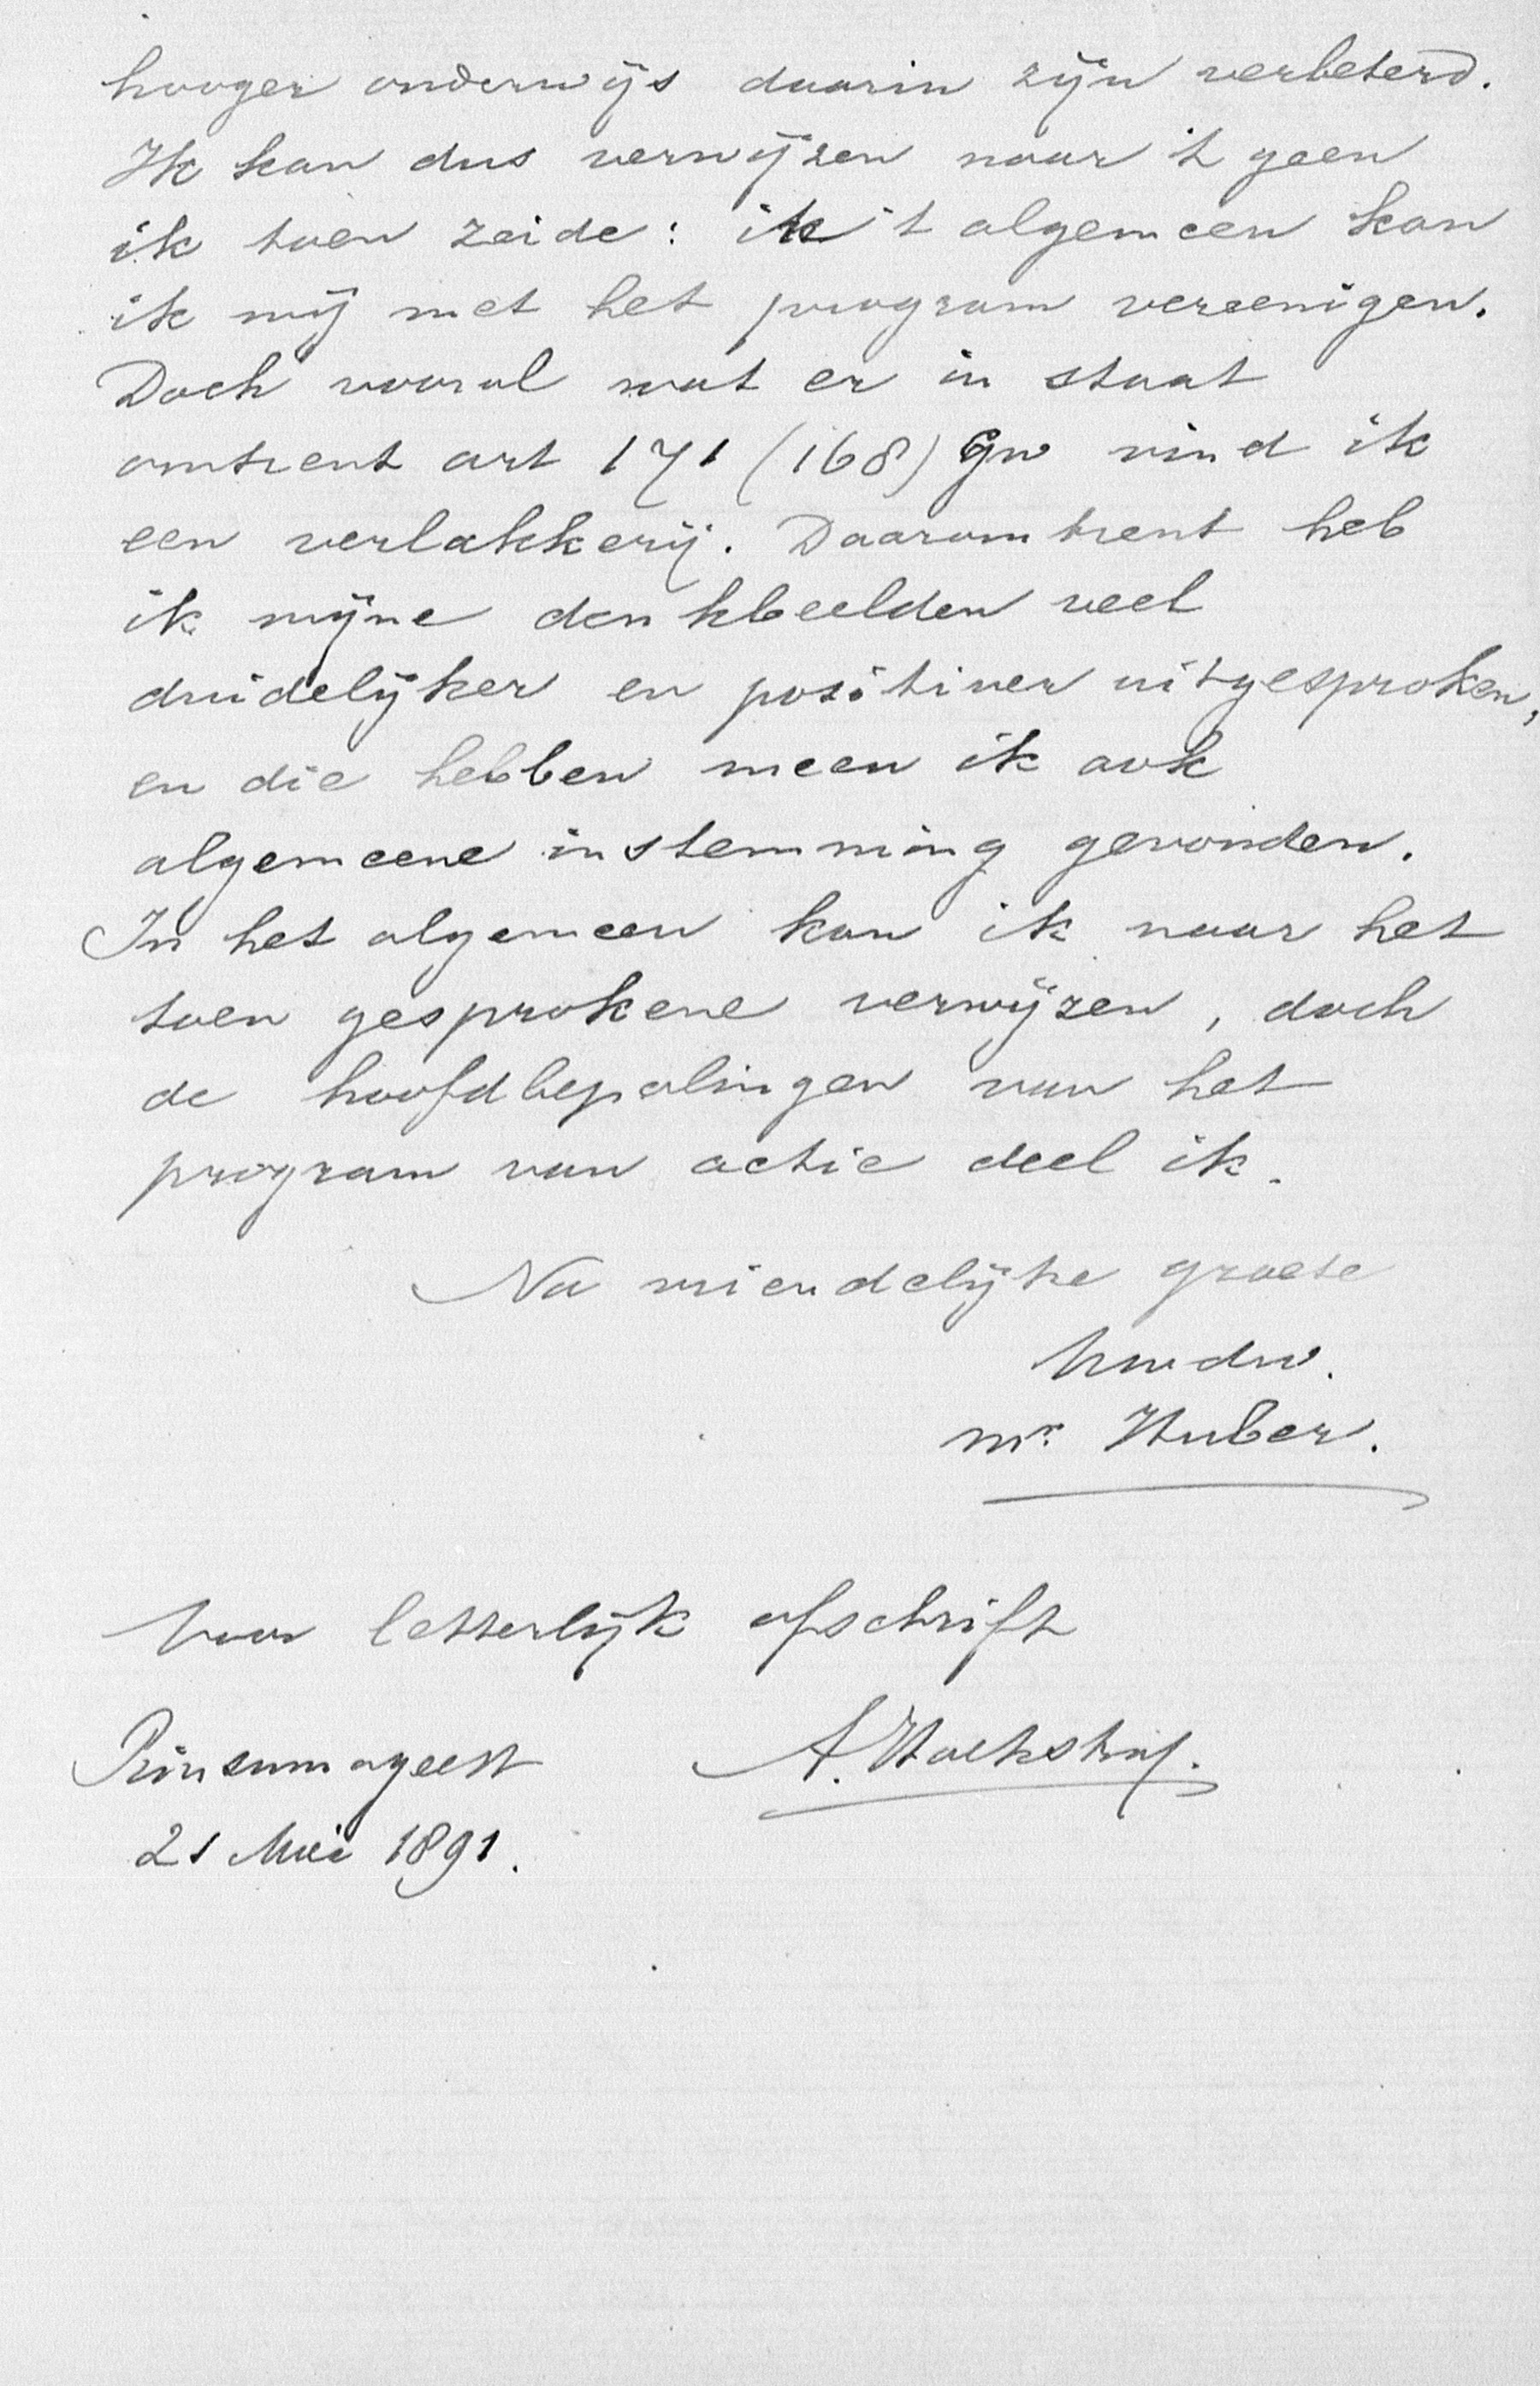 hooger onderwijs daarin zijn verbeterd.
Ik kan dus verwijzen naar 't geen
ik toen zeide: in 't algemeen kan
ik mij met het program vereenigen.
Doch vooral wat er in staat
omtrent art 171 (168) Gw vind ik
een verlakkerij. Daaromtrent heb
ik mijne denkbeelden veel
duidelijker en positiver uitgesproken,
en die hebben meen ik ook
algemeene instemming gevonden.
In het algemeen kan ik naar het
toen gesprokene verwijzen, doch
de hoofdbepalingen van het
program van actie deel ik.
Na vriendelijke groete
Uwdw.
Mr. Huber.
Voor letterlijk afschrift
Rinsumageest A. Hoekstra.
21 Mei 1891.